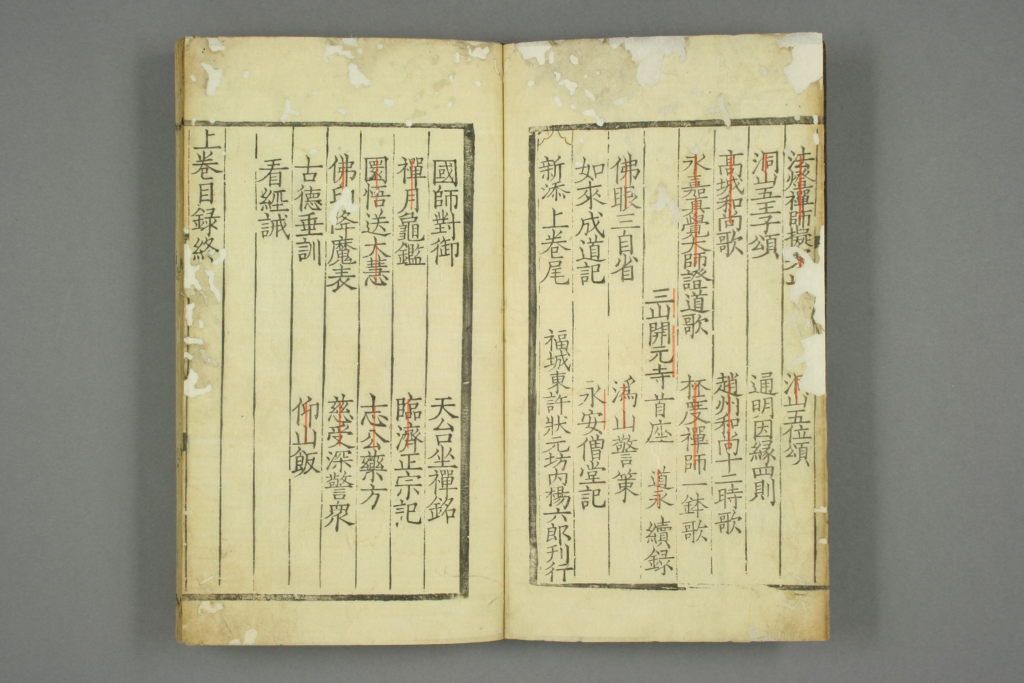 法燈禪師擬 洞山五位頌
洞山五王子頌 通明因緣四則
高城和尚歌 趙州和尚十二時歌
永嘉真覺大師證道歌 杯度禪師一鉢歌
三山開元寺首座 道永 續錄
佛眼三自省 溈山警策
如來成道記 永安僧堂記
新添上卷尾 福城東許狀元坊內楊六郎刊行
國師對御 天台坐禪銘
禪月龜鑑 臨濟正宗記
圜悟送大慧 志公藥方
佛印降魔表 慈受深警眾
古德垂訓 仰山飯
看經誡
上卷目錄終